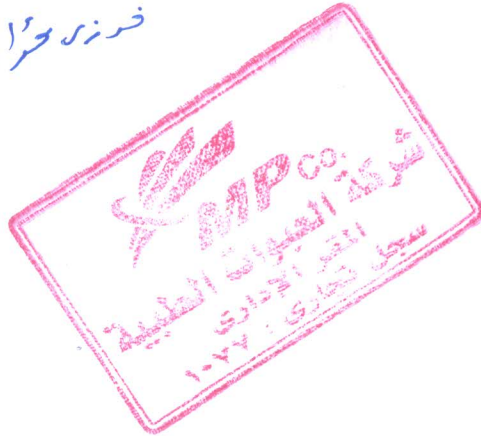 فوزي
MP CO.
شركة العبوات الطبية
المقر الإداري
سجل تجاري : ١٠٧٧